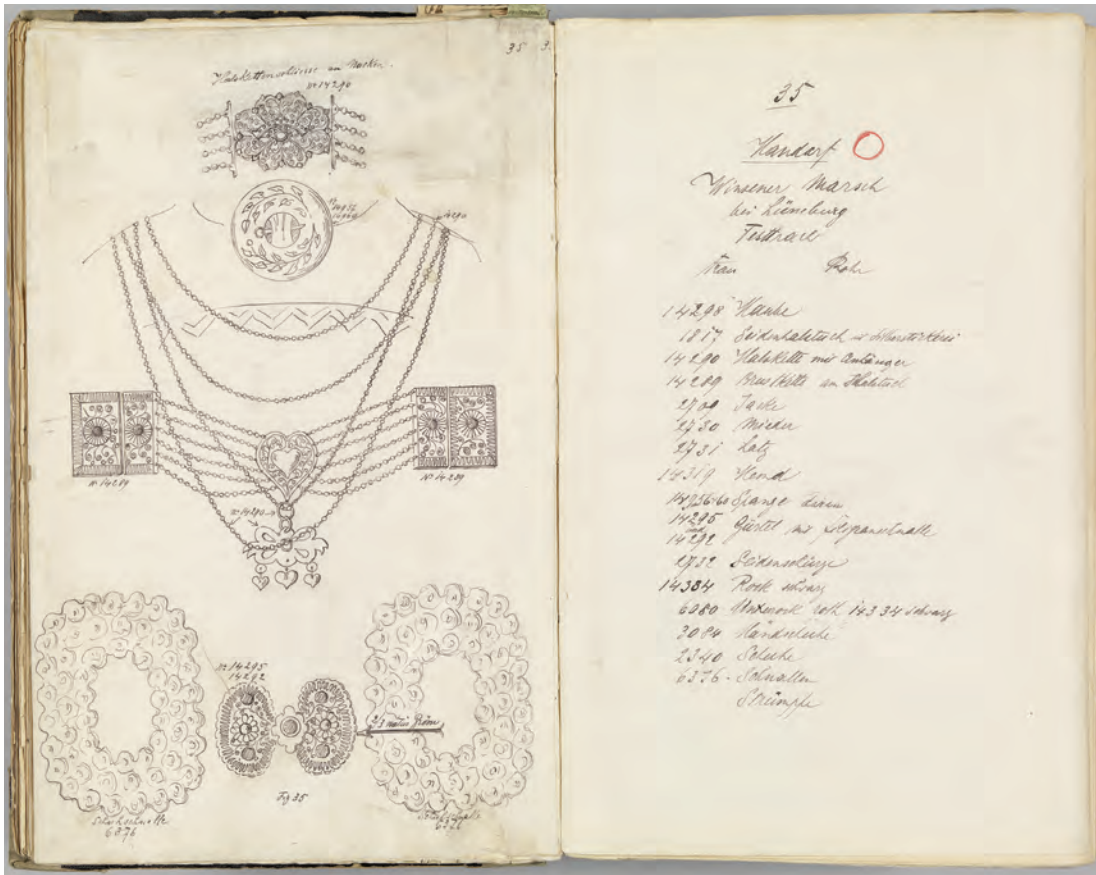 35 3
Halskettenschliesse im Nacken.
No 14290
14290
No 14289
No 14289
No 14290
No 14295
14292
2/3 natür Gröss
Fig 35
Schuhschnalle
6376
Schuhschnalle
6376
35
Handorf
Winsener Marsch
bei Lüneburg
Festtracht
Frau
14298 Haube
1817 Seidenhalstuch
14290 Halskette mit Anhänger
14289 Brustkette am Halstuch
2709 Jacke
2730 Mieder
2731 Latz
14319 Hemd
Spange daran
14295
und
14292 Gürtel mit Filigranschnalle
2732 Seidenschürze
14384 Rock schwarz
6080 Unterrock roth 14334 schwarz
3084 Handschuhe
2340 Schuhe
6376 - Schnallen
Strümpfe